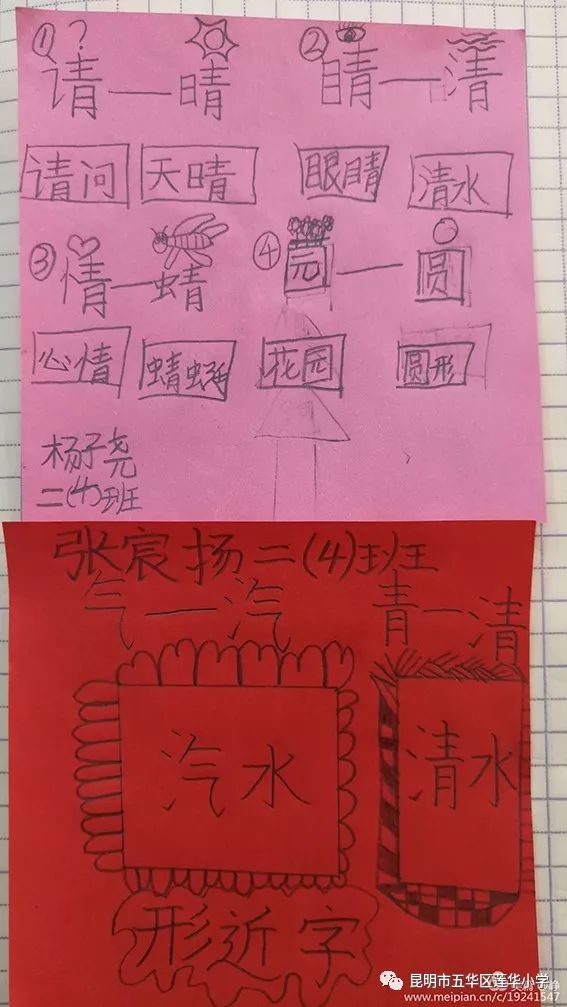 ① ?
请—晴 ② 睛—清
请问 天晴 眼睛 清水
③ 情—蜻 ④ 园—圆
心情 蜻蜓 花园 圆形
杨子尧
二(4)班
张宸扬二(4)班
气—汽 青—清
汽水 清水
形近字
昆明市五华区莲华小学
www.meipian.cn/c/19241547